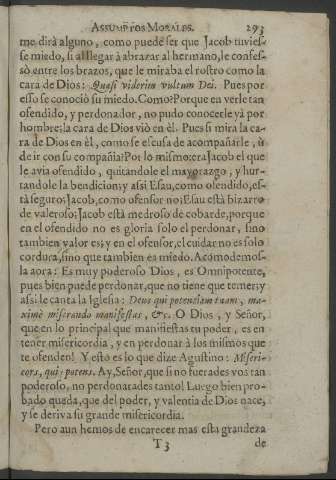 ASSUMPTOS MORALES. 293
me dirá alguno, como puede ser que Jacob tuvies-
se miedo, si al llegar à abrazar al hermano, le confes-
sò entre los brazos, que le miraba el rostro como la
cara de Dios: Quasi viderim vultum Dei. Pues por
esso se conociò su miedo. Como? Porque en verle tan
ofendido, y perdonador, no pudo conocerle yà por
hombre; la cara de Dios viò en èl. Pues si mira la ca-
ra de Dios en èl, como se escusa de acompañarle, ù
de ir con su compañia? Por lo mismo: era Jacob el que
le avia ofendido, quitandole el mayorazgo, y hur-
tandole la bendicion; y assi Esau, como ofendido, es-
tà seguro; Jacob, como ofensor no: Esaù està bizarro
de valeroso; Jacob està medroso de cobarde, porque
en el ofendido no es gloria solo el perdonar, sino
tambien valor es; y en el ofensor, el cuidar no es solo
cordura, sino que tambien es miedo. Acomodemos-
la aora: Es muy poderoso Dios, es Omnipotente,
pues bien puede perdonar, que no tiene que temer; y
assi le canta la Iglesia: Deus qui potentiam tuam, ma-
ximè miserando manifestas, &c. O Dios, y Señor,
que en lo principal que manifiestas tu poder, es en
tener misericordia, y en perdonar à los mismos que
te ofenden! Y esto es lo que dize Agustino: Miseri-
cors, qui potens. Ay, Señor, que si no fuerades vos tan
poderoso, no perdonarades tanto! Luego bien pro-
bado queda, que del poder, y valentia de Dios nace,
y se deriva su grande misericordia.
Pero aun hemos de encarecer mas esta grandeza
T 3 de